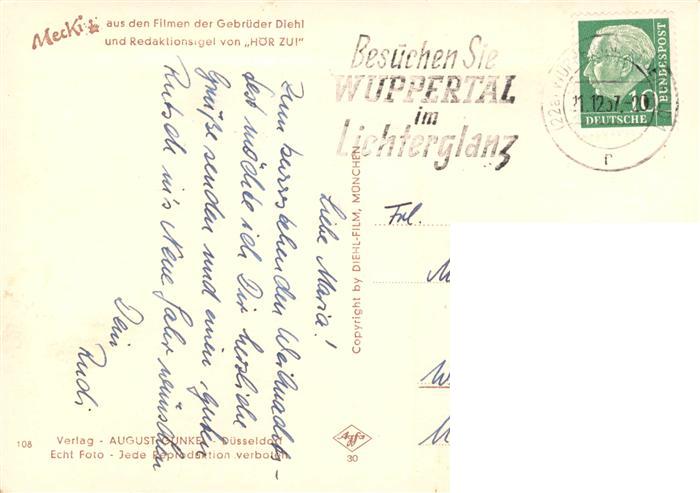 Mecki
aus den Filmen der Gebrüder Diehl
und Redaktionsigel von „HÖR ZU!"
Besuchen Sie
WUPPERTAL
im
Lichterglanz
(22a) WUPPERTAL
21.12.57
r
10
DEUTSCHE
BUNDESPOST
Liebe Maria!
Zum bevorstehenden Weihnachts-
fest möchte ich Dir herzliche
Grüße senden und einen guten
Rutsch in's Neue Jahr wünschen
Dein
Rudi
Copyright by DIEHL-FILM, MÜNCHEN
Frl.
M
W
108
Verlag - AUGUST GUNKEL - Düsseldorf
Echt Foto - Jede Reproduktion verboten
Agfa
30